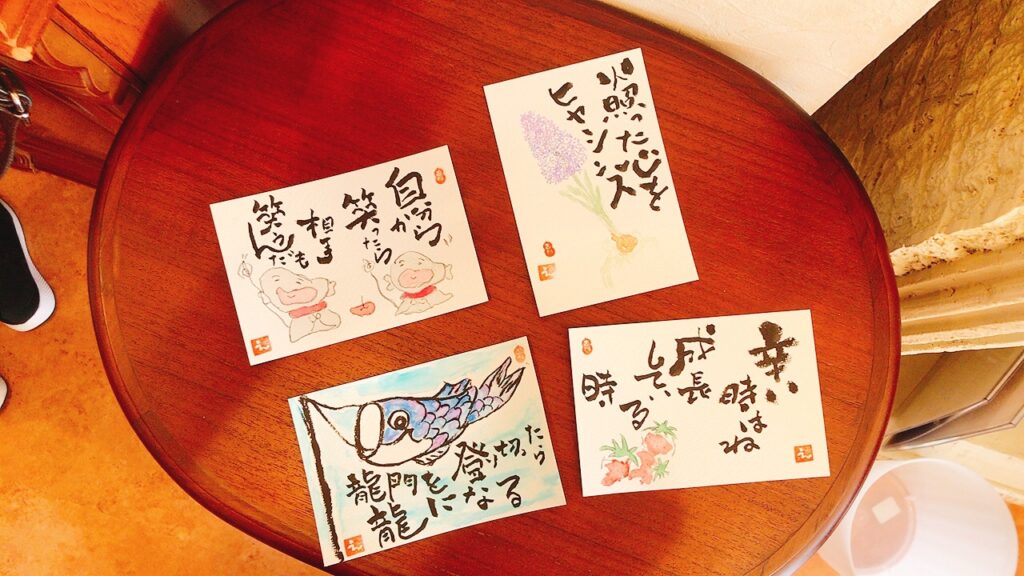 自分から
笑ったら
相手も
笑うんだ
火照った心を
ヒヤシンス
龍門を登り切ったら
龍になる
辛い
時はね
成長
している
時